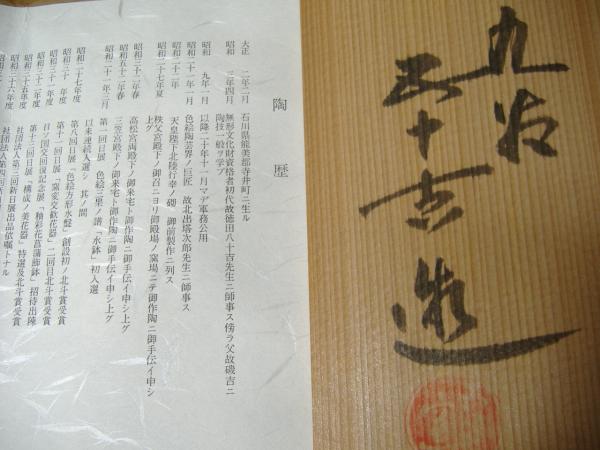 九谷五十吉造
陶歴
大正 二年二月 石川県能美郡寺井町ニ生ル
昭和 三年四月 無形文化財資格者初代故徳田八十吉先生ニ師事ス傍ラ父故磯吉ニ
陶技一般ヲ学ブ
昭和 九年一月 以降二十年十一月マデ軍務公用
昭和二十一年一月 色絵陶芸界ノ巨匠 故北出塔次郎先生ニ師事ス
昭和二十二年 天皇陛下北陸行幸ノ砌 御前製作ニ列ス
昭和二十七年夏 秩父宮殿下ノ御召ニヨリ御殿場ノ窯場ニテ御作陶ニ御手伝イ申シ
上グ
昭和三十二年春 高松宮両殿下ノ御来宅ト御作陶ニ御手伝イ申シ上グ
昭和五十二年春 三笠宮殿下ノ御来宅ト御作陶ニ御手伝イ申シ上グ
昭和二十一年三月 第一回日展 色絵三果ノ譜「水鉢」初入選
以来連続入選シ 其ノ間
昭和二十七年度 第八回日展「色絵方形水盤」創設初ノ北斗賞受賞
昭和三十年度 第十一回日展「窯変交歓花器」二回目北斗賞受賞
昭和三十一年度 日ソ国交回復記念展「釉彩花菖蒲飾鉢」招待出陳
昭和三十二年度 第十三回日展「構成ノ美花器」特選及北斗賞受賞
昭和三十五年度 社団法人第三回新日展出品依嘱トナル
昭和三十六年度 社団法人第四回新日展